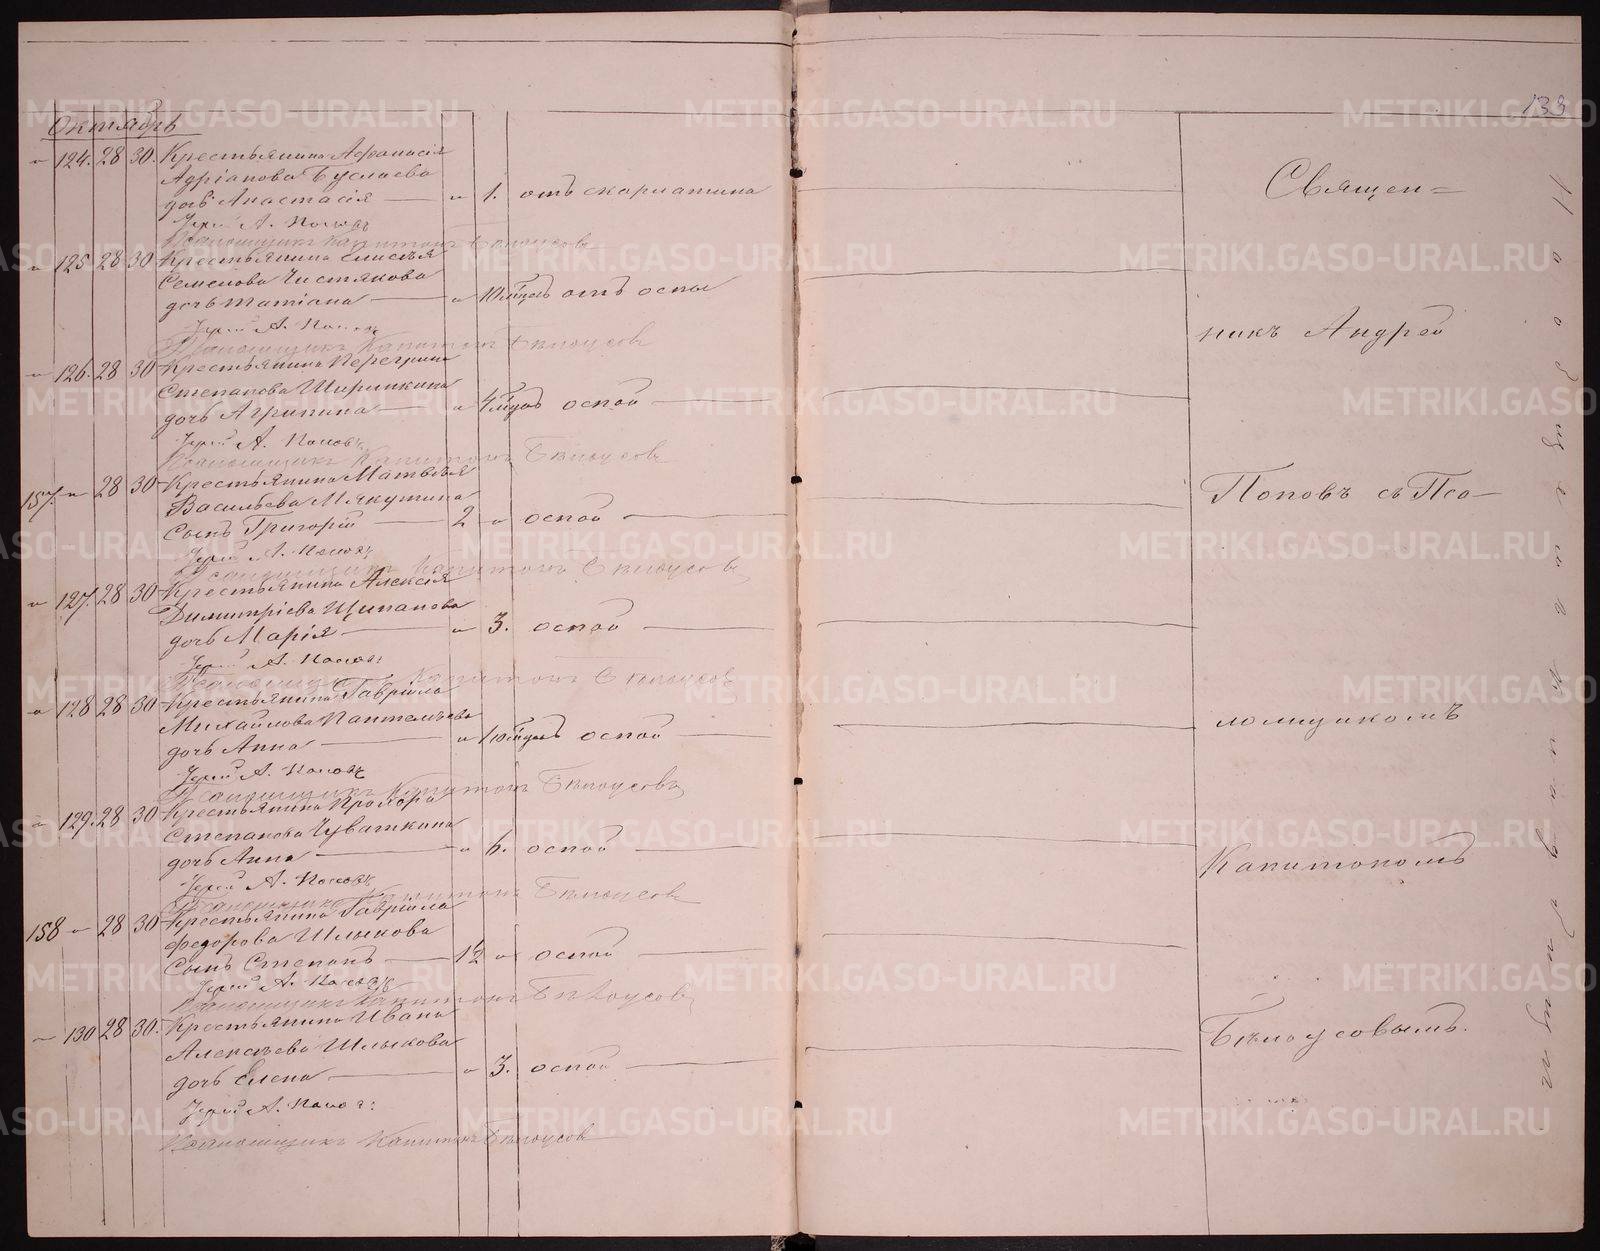 133
Октябрь
" 124. 28 30. Крестьянина Афанасія
Адріанова Буслаева
дочь Анастасія — " 1. отъ скарлатина
Іерей А. Поповъ
Псаломщикъ Капитонъ Бѣлоусовъ
" 125 28 30 Крестьянина Елисѣя
Семенова Чистякова
дочь Татіана — " 10 мѣсяц. отъ оспы
Іерей А. Поповъ
Псаломщикъ Капитонъ Бѣлоусовъ
" 126. 28 30 Крестьянина Перегрина
Степанова Ширинкина
дочь Агрипина — " 4 оспой
Іерей А. Поповъ
Псаломщикъ Капитонъ Бѣлоусовъ
157. " 28 30 Крестьянина Матвѣя
Васильева Мякутина
Сынъ Григорій — 2 " оспой
Іерей А. Поповъ
Псаломщикъ Капитонъ Бѣлоусовъ
" 127. 28 30 Крестьянина Алексія
Димитріева Щипанова
дочь Марія — " 3. оспой
Іерей А. Поповъ
Псаломщикъ Капитонъ Бѣлоусовъ
" 128 28 30 Крестьянина Гавріила
Михайлова Пантелѣева
дочь Анна — " оспой
Іерей А. Поповъ
Псаломщикъ Капитонъ Бѣлоусовъ
" 129. 28 30 Крестьянина
Степанова Чувашкина
дочь Анна — " 6. оспой
Іерей А. Поповъ
Псаломщикъ Капитонъ Бѣлоусовъ
158 " 28 30 Крестьянина Гавріила
Федорова Шлыкова
Сынъ Степанъ — 12 " оспой
Іерей А. Поповъ
Псаломщикъ Капитонъ Бѣлоусовъ
" 130 28 30. Крестьянина Ивана
Алексѣева Шлыкова
дочь Елена — " 3. оспой
Іерей А. Поповъ
Псаломщикъ Капитонъ Бѣлоусовъ
Священ=
никъ Андрей
Поповъ съ Пса-
ломщикомъ
Капитономъ
Бѣлоусовымъ.
METRIKI.GASO-URAL.RU